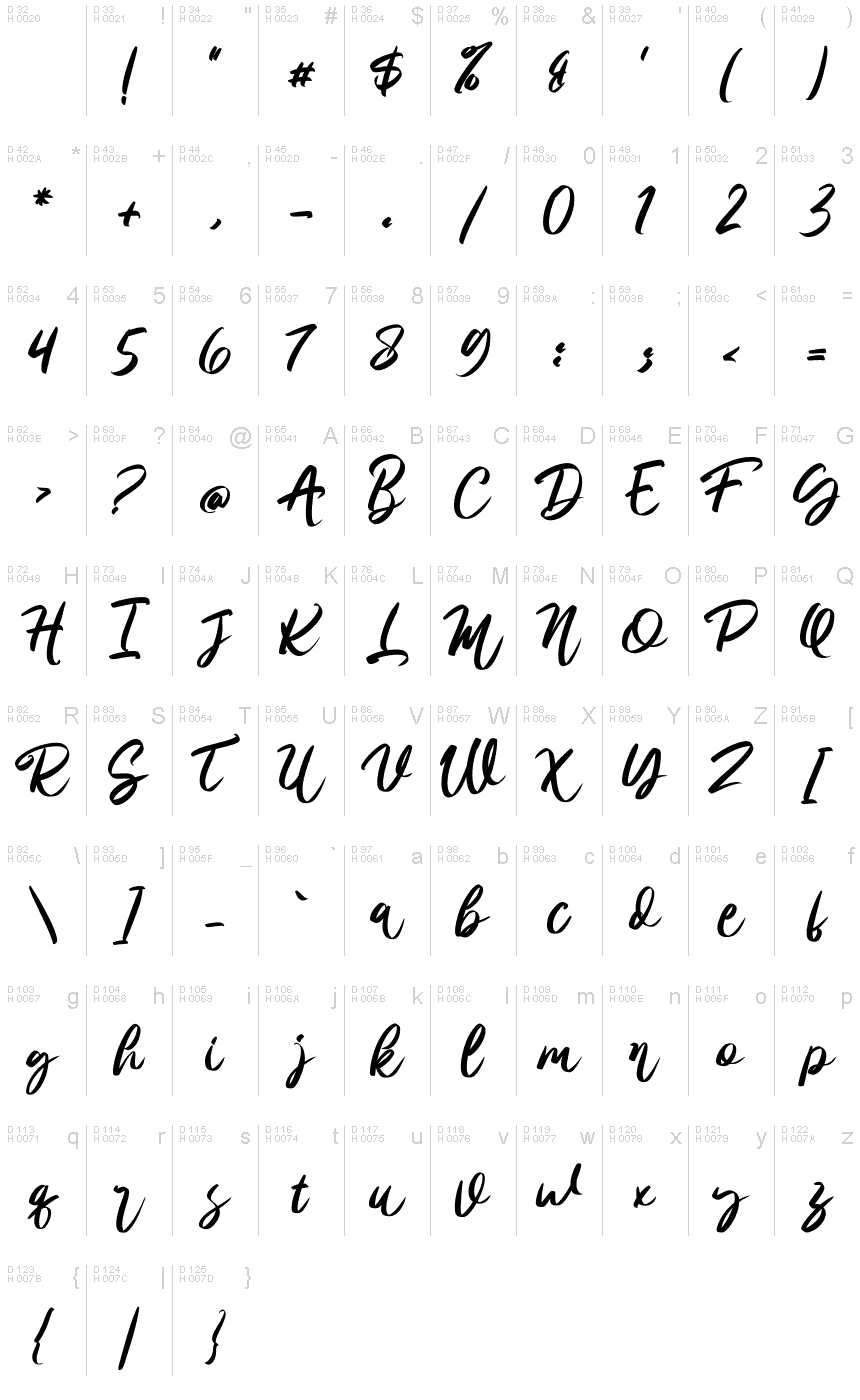 D 32 H 0020 D 33 H 0021 ! D 34 H 0022 " D 35 H 0023 # D 36 H 0024 $ D 37 H 0025 % D 38 H 0026 & D 39 H 0027 ' D 40 H 0028 ( D 41 H 0029 )
! " # $ % & ' ( )
D 42 H 002A * D 43 H 002B + D 44 H 002C , D 45 H 002D - D 46 H 002E . D 47 H 002F / D 48 H 0030 0 D 49 H 0031 1 D 50 H 0032 2 D 51 H 0033 3
* + , - . / 0 1 2 3
D 52 H 0034 4 D 53 H 0035 5 D 54 H 0036 6 D 55 H 0037 7 D 56 H 0038 8 D 57 H 0039 9 D 58 H 003A : D 59 H 003B ; D 60 H 003C < D 61 H 003D =
4 5 6 7 8 9 : ; < =
D 62 H 003E > D 63 H 003F ? D 64 H 0040 @ D 65 H 0041 A D 66 H 0042 B D 67 H 0043 C D 68 H 0044 D D 69 H 0045 E D 70 H 0046 F D 71 H 0047 G
> ? @ A B C D E F G
D 72 H 0048 H D 73 H 0049 I D 74 H 004A J D 75 H 004B K D 76 H 004C L D 77 H 004D M D 78 H 004E N D 79 H 004F O D 80 H 0050 P D 81 H 0051 Q
H I J K L M N O P Q
D 82 H 0052 R D 83 H 0053 S D 84 H 0054 T D 85 H 0055 U D 86 H 0056 V D 87 H 0057 W D 88 H 0058 X D 89 H 0059 Y D 90 H 005A Z D 91 H 005B [
R S T U V W X Y Z [
D 92 H 005C \ D 93 H 005D ] D 95 H 005F _ D 96 H 0060 ` D 97 H 0061 a D 98 H 0062 b D 99 H 0063 c D 100 H 0064 d D 101 H 0065 e D 102 H 0066 f
\ ] _ ` a b c d e f
D 103 H 0067 g D 104 H 0068 h D 105 H 0069 i D 106 H 006A j D 107 H 006B k D 108 H 006C l D 109 H 006D m D 110 H 006E n D 111 H 006F o D 112 H 0070 p
g h i j k l m n o p
D 113 H 0071 q D 114 H 0072 r D 115 H 0073 s D 116 H 0074 t D 117 H 0075 u D 118 H 0076 v D 119 H 0077 w D 120 H 0078 x D 121 H 0079 y D 122 H 007A z
q r s t u v w x y z
D 123 H 007B { D 124 H 007C | D 125 H 007D }
{ | }